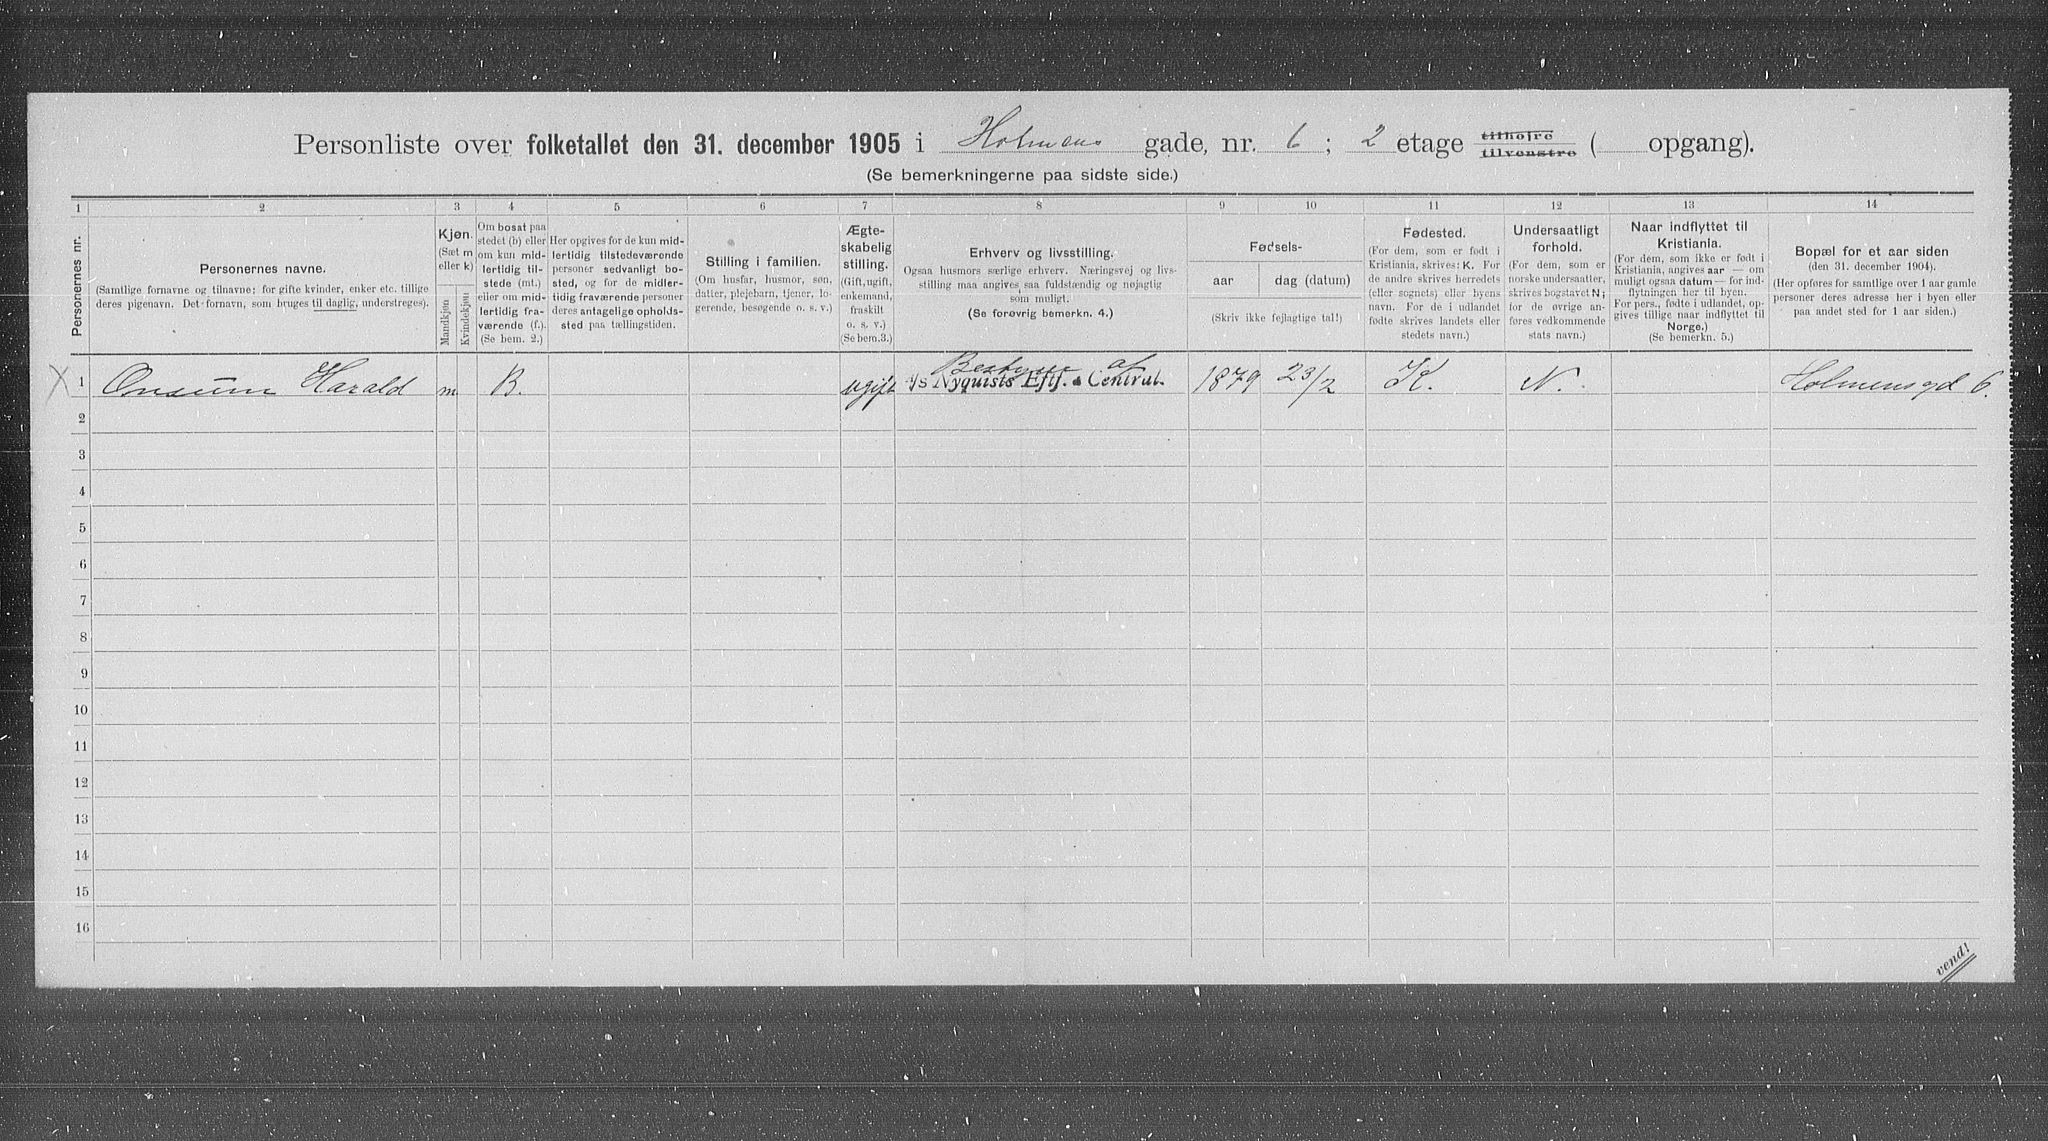 Personliste over folketallet den 31. december 1905 i Holmens gade, nr. 6 ; 2 etage tilhøjre tilvenstre ( opgang).
(Se bemerkningerne paa sidste side.)
1 2 3 4 5 6 7 8 9 10 11 12 13 14
Personernes nr.
Personernes navne.
(Samtlige fornavne og tilnavne; for gifte kvinder, enker etc. tillige
deres pigenavn. Det fornavn, som bruges til daglig, understreges).
Kjøn.
(Sæt m
eller k)
Mandkjøn
Kvindekjøn
Om bosat paa
stedet (b) eller
om kun mid-
lertidig til-
stede (mt.)
eller om mid-
lertidig fra-
værende (f.).
(Se bem. 2.)
Her opgives for de kun mid-
lertidig tilstedeværende
personer sedvanligt bo-
sted, og for de midler-
tidig fraværende personer
deres antagelige opholds-
sted paa tællingstiden.
Stilling i familien.
(Om husfar, husmor, søn,
datter, plejebarn, tjener, lo-
gerende, besøgende o. s. v.)
Ægte-
skabelig
stilling.
(Gift, ugift,
enkemand,
fraskilt
o. s. v.)
(Se bem.3.)
Erhverv og livsstilling.
Ogsaa husmors særlige erhverv. Næringsvej og livs-
stilling maa angives saa fuldstændig og nøjagtig
som muligt.
(Se forøvrig bemerkn. 4.)
Fødsels-
aar
dag (datum)
(Skriv ikke fejlagtige tal!)
Fødested.
(For dem, som er født i
Kristiania, skrives: K. For
de andre skrives herredets
(eller sognets) eller byens
navn. For de i udlandet
fødte skrives landets eller
stedets navn.)
Undersaatligt
forhold.
(For dem, som er
norske undersaatter,
skrives bogstavet N;
for de øvrige an-
føres vedkommende
stats navn.)
Naar indflyttet til
Kristiania.
(For dem, som ikke er født i
Kristiania, angives aar — om
muligt ogsaa datum — for ind-
flytningen her til byen.
For pers., fødte i udlandet, op-
gives tillige naar indflyttet til
Norge.)
(Se bemerkn. 5.)
Bopæl for et aar siden
(den 31. december 1904).
(Her opføres for samtlige over 1 aar gamle
personer deres adresse her i byen eller
paa andet sted for 1 aar siden.)
Bestyrer af
X 1 Onsum Harald m B. ugift A/s Nyquists Eftf. a Central. 1879 23/2 K. N. Holmensgd 6.
2
3
4
5
6
7
8
9
10
11
12
13
14
15
16
vend!